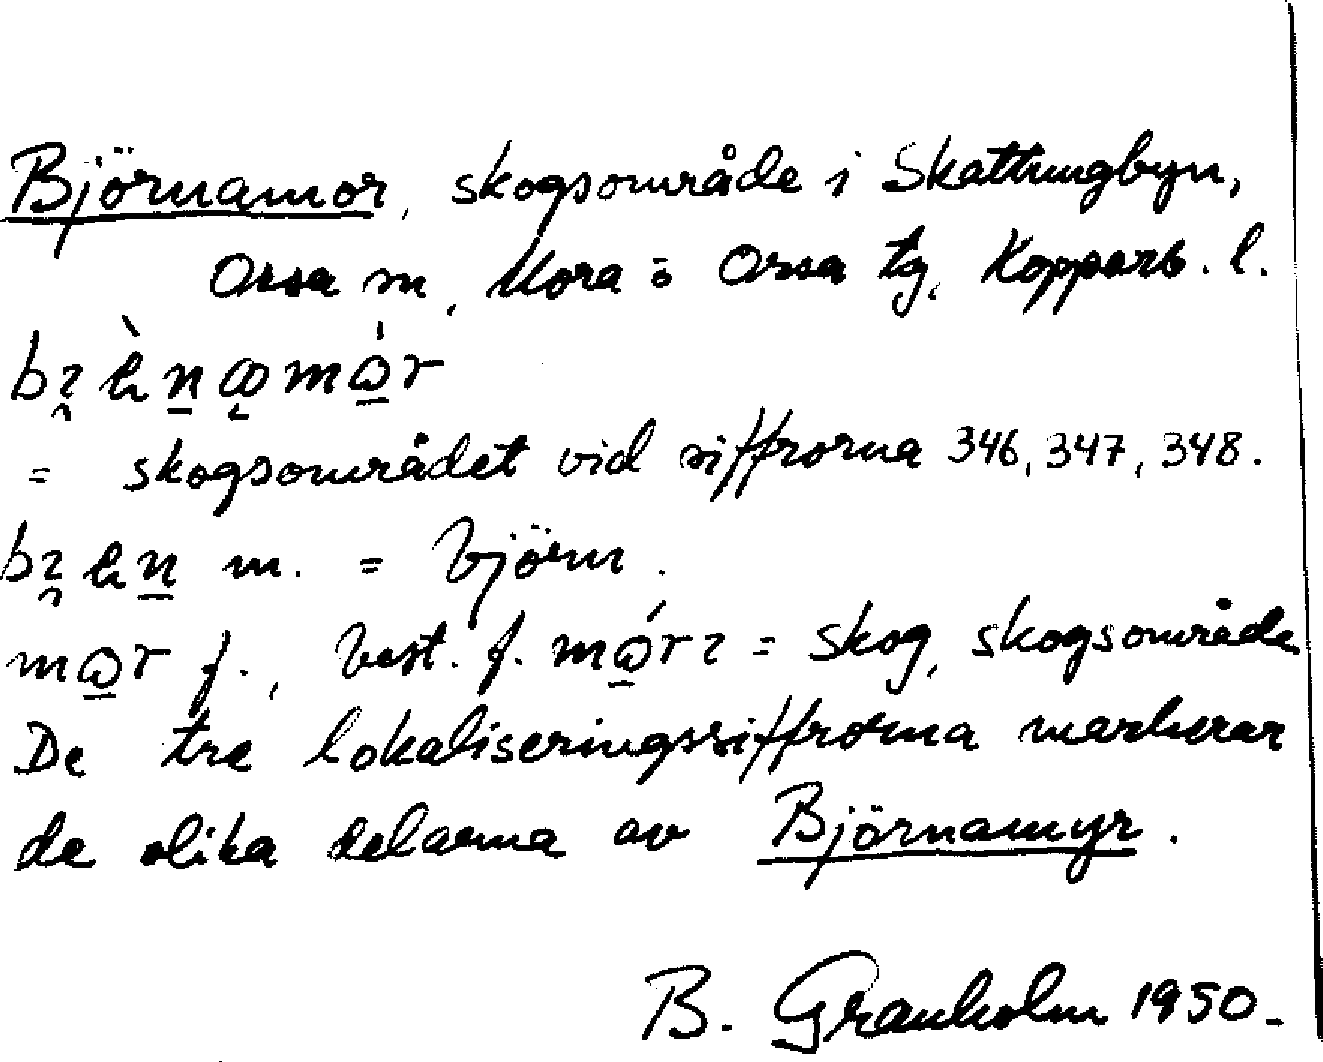 Björnamor, skogsområde i Skattungbyn,
Orsa sn, Mora o Orsa tg, Kopparb. l.
= skogsområdet vid siffrorna 346, 347, 348.
m. = björn.
f., best. f. = skog, skogsområde
De tre lokaliseringssiffrorna markerar
de olika delarna av Björnamyr.
B. Granholm 1950.